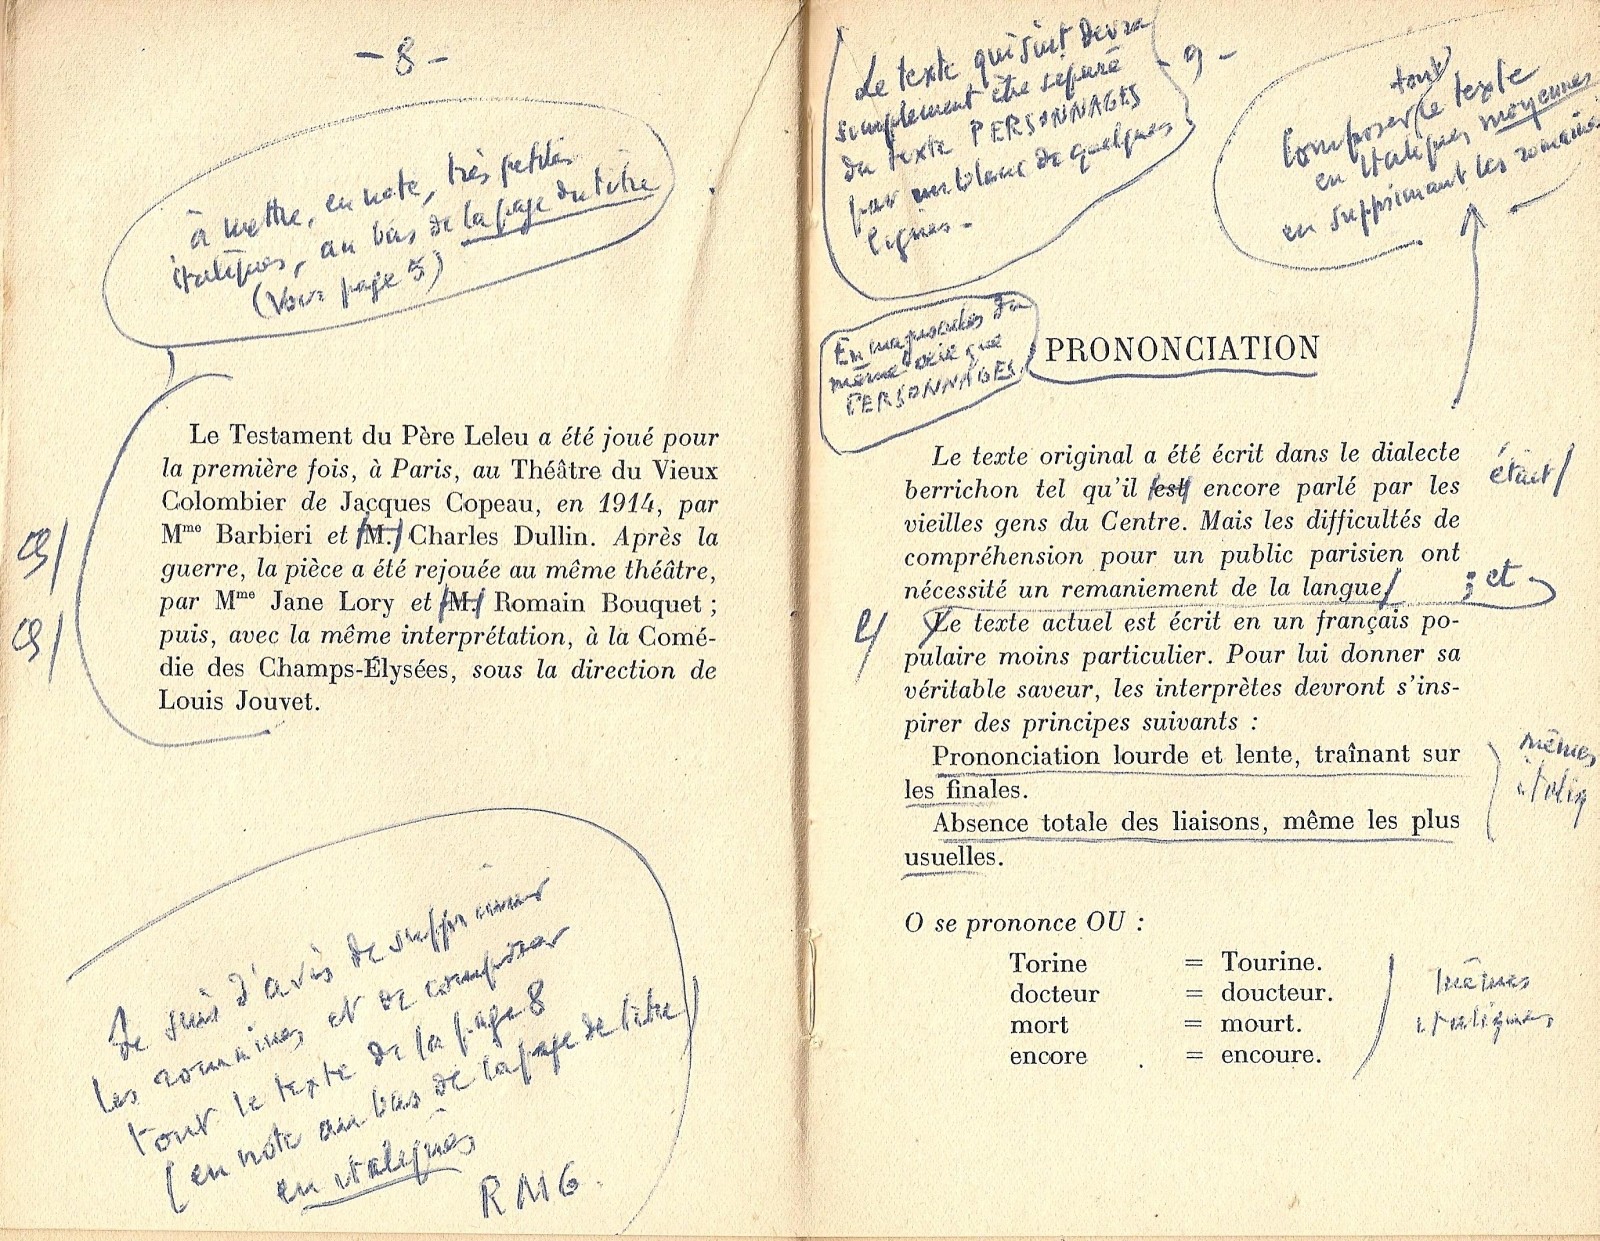 - 8 -
à mettre, en note, très petites
italiques, au bas de la page du titre
(Voir page 5)
Le Testament du Père Leleu a été joué pour
la première fois, à Paris, au Théâtre du Vieux
Colombier de Jacques Copeau, en 1914, par
Mme Barbieri et M. Charles Dullin. Après la
guerre, la pièce a été rejouée au même théâtre,
par Mme Jane Lory et M. Romain Bouquet ;
puis, avec la même interprétation, à la Comé-
die des Champs-Élysées, sous la direction de
Louis Jouvet.
Je suis d'avis de supprimer
les romaines, et de composer
tout le texte de la page 8
(en note au bas de la page de titre)
en italiques
RMG.
- 9 -
Le texte qui suit devra
simplement être séparé
du texte PERSONNAGES
par un blanc de quelques
lignes.
tout
Composer le texte
en italiques moyennes
en supprimant les romaines
En majuscules du
même œil que
PERSONNAGES
PRONONCIATION
Le texte original a été écrit dans le dialecte
berrichon tel qu'il est encore parlé par les
était/
vieilles gens du Centre. Mais les difficultés de
compréhension pour un public parisien ont
nécessité un remaniement de la langue/
; et
l/
Le texte actuel est écrit en un français po-
pulaire moins particulier. Pour lui donner sa
véritable saveur, les interprètes devront s'ins-
pirer des principes suivants :
Prononciation lourde et lente, traînant sur
les finales.
Absence totale des liaisons, même les plus
usuelles.
mêmes
italiq
O se prononce OU :
Torine = Tourine.
docteur = doucteur.
mort = mourt.
encore = encoure.
mêmes
italiques